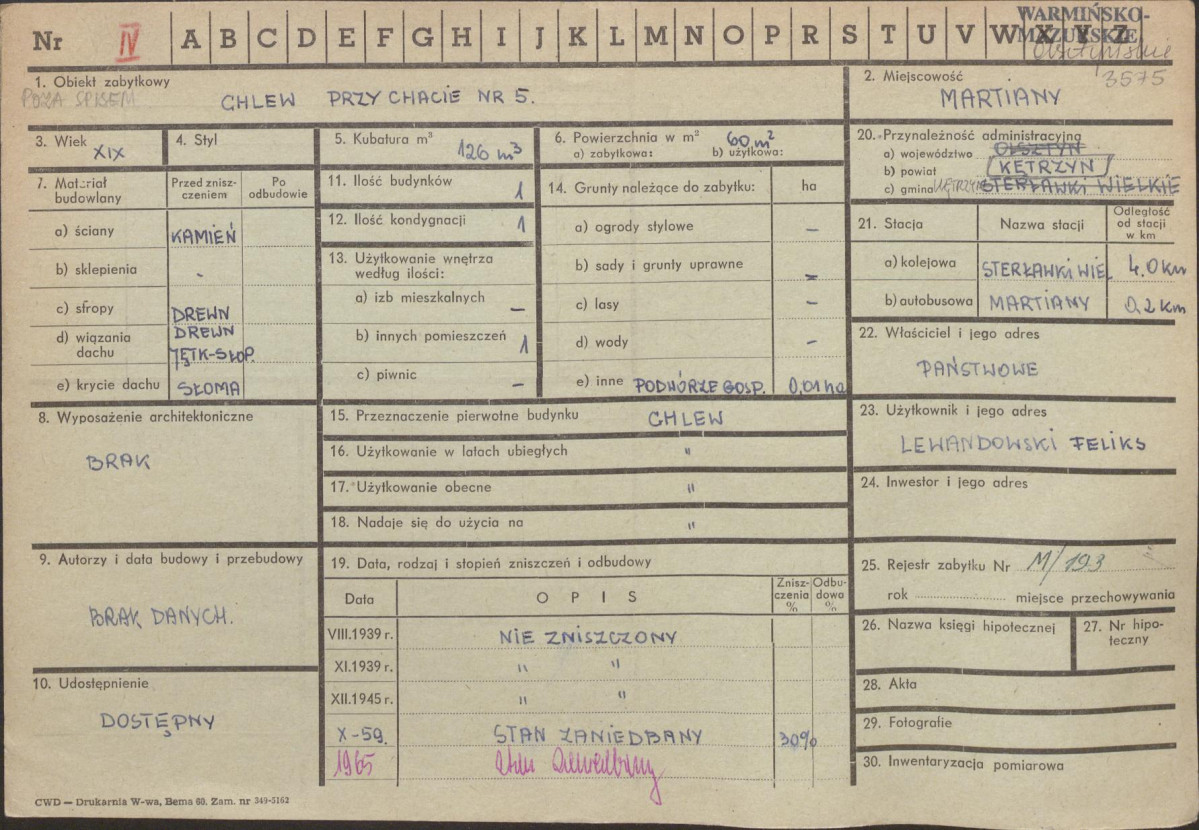 Nr IV A B C D E F G H I J K L M N O P R S T U V W X Y Z
WARMIŃSKO-
MAZURSKIE
Olsztyńskie
3575
1. Obiekt zabytkowy
POZA SPISEM
CHLEW PRZY CHACIE NR 5.
2. Miejscowość
MARTIANY
3. Wiek
XIX
4. Styl
5. Kubatura m³
126 m³
6. Powierzchnia w m² 60 m²
a) zabytkowa: b) użytkowa:
20. Przynależność administracyjna
a) województwo OLSZTYN
b) powiat KĘTRZYN
c) gmina KĘTRZYN STERŁAWKI WIELKIE
7. Materiał budowlany
Przed zniszczeniem
Po odbudowie
a) ściany KAMIEŃ
b) sklepienia -
c) stropy DREWN
d) wiązania dachu DREWN JĘTK-SŁOP.
e) krycie dachu SŁOMA
11. Ilość budynków 1
12. Ilość kondygnacji 1
13. Użytkowanie wnętrza według ilości:
a) izb mieszkalnych –
b) innych pomieszczeń 1
c) piwnic –
14. Grunty należące do zabytku: ha
a) ogrody stylowe –
b) sady i grunty uprawne –
c) lasy –
d) wody –
e) inne PODWÓRZE GOSP. 0,01 ha
21. Stacja Nazwa stacji Odległość od stacji w km
a) kolejowa STERŁAWKI WIEL. 4.0 km
b) autobusowa MARTIANY 0,2 km
22. Właściciel i jego adres
PAŃSTWOWE
8. Wyposażenie architektoniczne
BRAK
15. Przeznaczenie pierwotne budynku CHLEW
16. Użytkowanie w latach ubiegłych "
17. Użytkowanie obecne "
18. Nadaje się do użycia na "
23. Użytkownik i jego adres
LEWANDOWSKI FELIKS
24. Inwestor i jego adres
9. Autorzy i data budowy i przebudowy
BRAK DANYCH.
10. Udostępnienie
DOSTĘPNY
19. Data, rodzaj i stopień zniszczeń i odbudowy
Data OPIS Zniszczenia % Odbudowa %
VIII.1939 r. NIE ZNISZCZONY
XI.1939 r. " "
XII.1945 r. " "
X-59. STAN ZANIEDBANY 30%
1965 stan zaniedbany
25. Rejestr zabytku Nr M/193
rok miejsce przechowywania
26. Nazwa księgi hipotecznej
27. Nr hipoteczny
28. Akta
29. Fotografie
30. Inwentaryzacja pomiarowa
CWD — Drukarnia W-wa, Bema 60. Zam. nr 349-5162